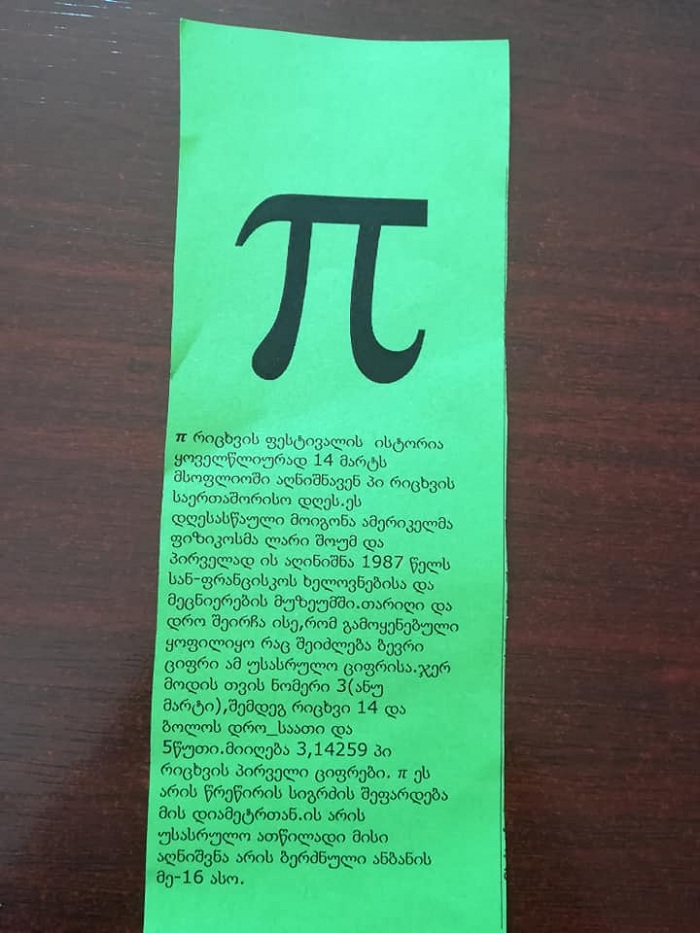 π
π რიცხვის ფესტივალის ისტორია
ყოველწლიურად 14 მარტს
მსოფლიოში აღნიშნავენ პი რიცხვის
საერთაშორისო დღეს.ეს
დღესასწაული მოიგონა ამერიკელმა
ფიზიკოსმა ლარი შოუმ და
პირველად ის აღინიშნა 1987 წელს
სან-ფრანცისკოს ხელოვნებისა და
მეცნიერების მუზეუმში.თარიღი და
დრო შეირჩა ისე,რომ გამოყენებული
ყოფილიყო რაც შეიძლება ბევრი
ციფრი ამ უსასრულო ციფრისა.ჯერ
მოდის თვის ნომერი 3(ანუ
მარტი),შემდეგ რიცხვი 14 და
ბოლოს დრო_საათი და
5წუთი.მიიღება 3,14259 პი
რიცხვის პირველი ციფრები. π ეს
არის წრეწირის სიგრძის შეფარდება
მის დიამეტრთან.ის არის
უსასრულო ათწილადი მისი
აღნიშვნა არის ბერძნული ანბანის
მე-16 ასო.